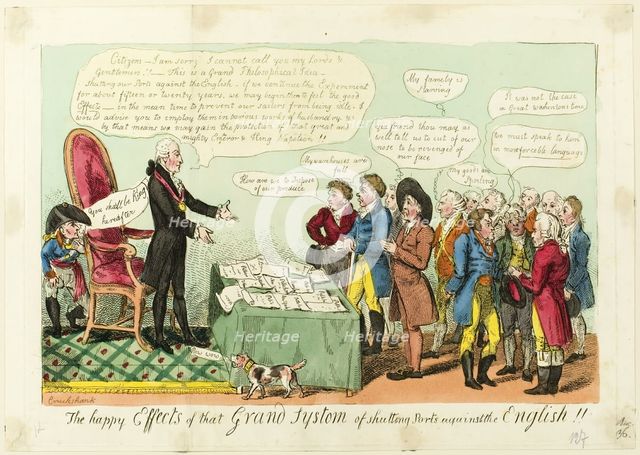 Citizens - I am sorry I cannot call you my Lords &
Gentlemen!! - This is a Grand Philosophical Idea -
shutting our Ports against the English - if we continue the Experiment
for about fifteen or twenty years, we may begin then to feel the good
Effects - in the mean time to prevent our sailors from being idle - I
would advise you to employ them in various works of husbandry &c
by that means we may gain the protection of that great and
mighty Emperor & King Napoleon!!
You shall be King
hereafter
How are we to Dispose
of our produce
My warehouses are
full
My famely is
Starving
yea friend thou may as
well tell us to cut of our
nose to be revenged of
our face
My goods are
Spoiling
It was not the case
in Great Washintons time
We must speak to him
in more forceable language
Bow wow
Cruikshank
The happy Effects of that Grand Systom of shutting Ports against the English!!
127
36.
Heritage
Images
Heritage
Images
Heritage
Images
Heritage
Images